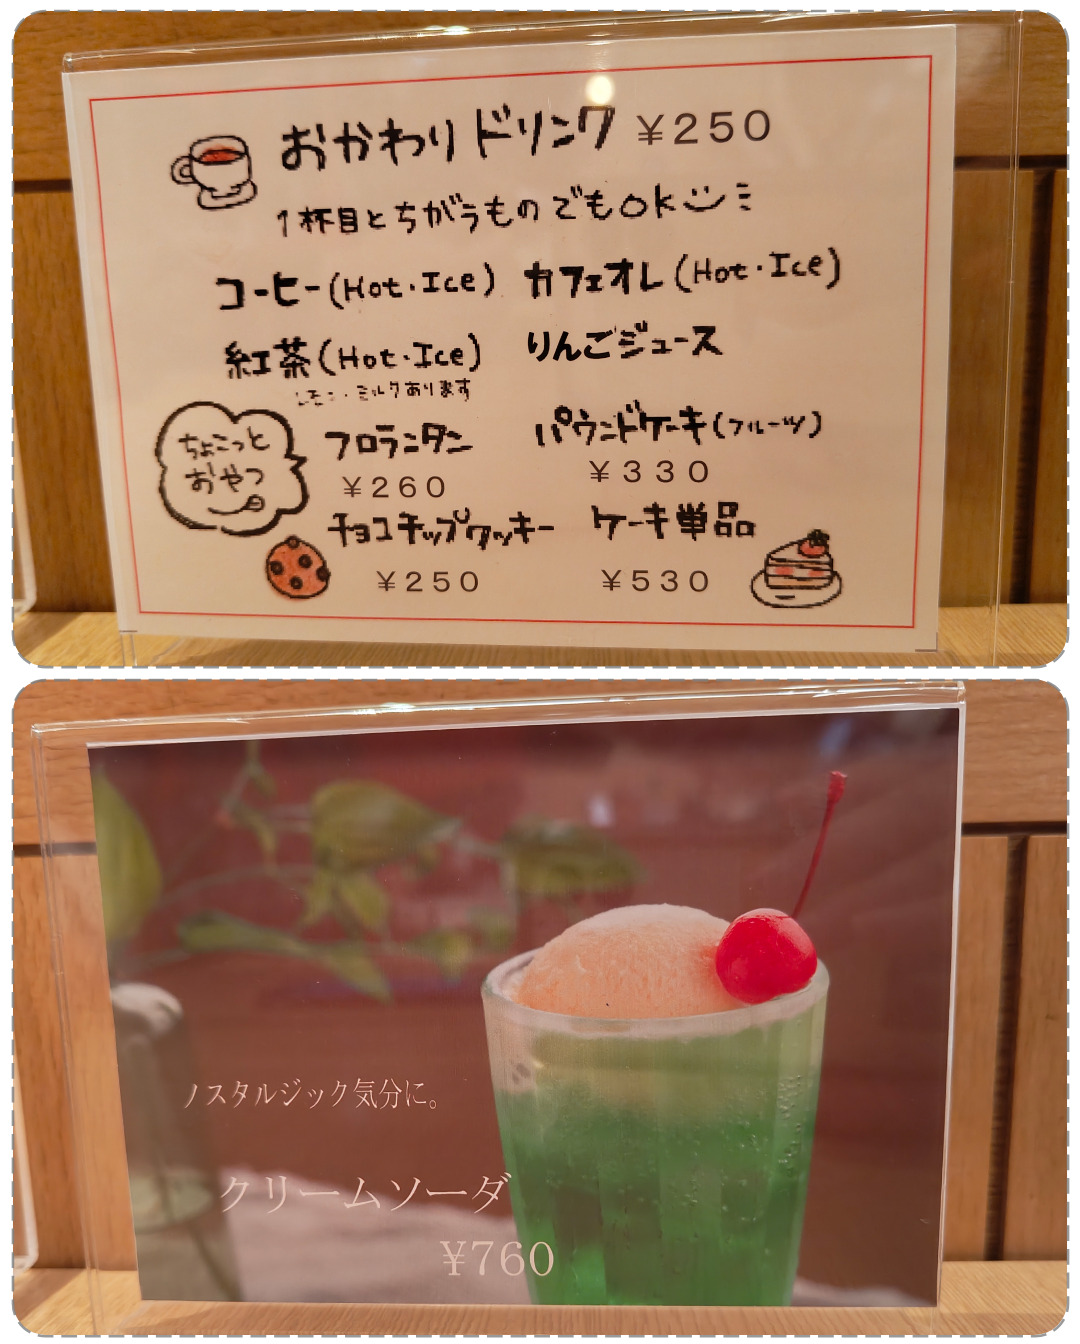 おかわりドリンク ¥250
1杯目とちがうものでもOK
コーヒー(Hot・Ice) カフェオレ(Hot・Ice)
紅茶(Hot・Ice) りんごジュース
レモン・ミルクあります
ちょこっと
おやつ
フロランタン パウンドケーキ(フルーツ)
¥260 ¥330
チョコチップクッキー ケーキ単品
¥250 ¥530
ノスタルジック気分に。
クリームソーダ
¥760